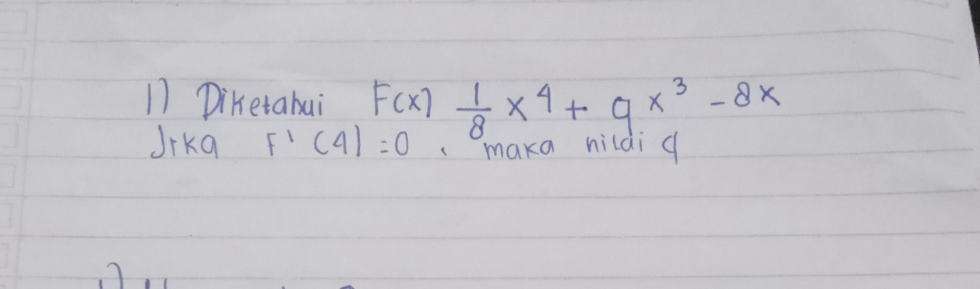 1) Diketahui F(x) 1/8 x^4 + q x^3 - 8x
Jika F'(4) = 0, maka nilai q